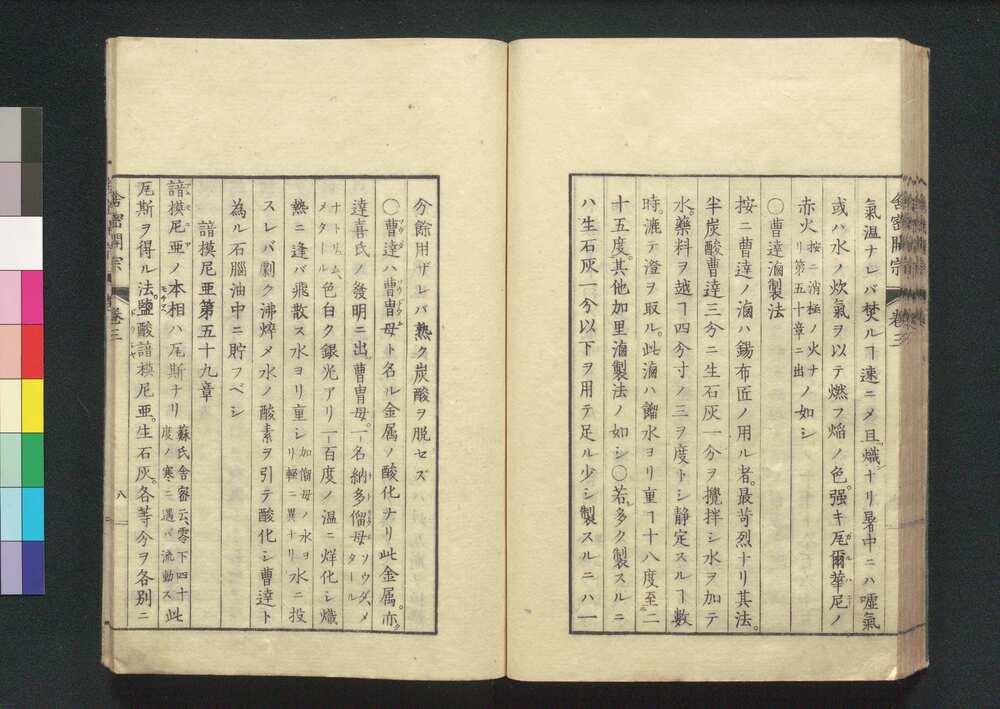 氣温ナレバ焚ルヿ速ニメ且熾ナリ暑中ニハ嘘氣
或ハ水ノ炊氣ヲ以テ燃フ焔ノ色強キ瓦爾華尼ノ
赤火按ニ消極ノ火ナリ第五十章ニ出ノ如シ
〇曹達滷製法
按ニ曹達ノ滷ハ錫布匠ノ用ル者最苛烈ナリ其法
半炭酸曹達三分ニ生石灰一分ヲ攪拌シ水ヲ加テ
水藥料ヲ越ヿ四分寸ノ三ヲ度トシ静定スルヿ數
時漉テ澄ヲ取ル此滷ハ餾水ヨリ重ヿ十八度至二
十五度其他加里滷製法ノ如シ〇若多ク製スルニ
ハ生石灰一今以下ヲ用テ足ル少シ製スルニハ一
舎密開宗 卷三
今餘用ザレバ熟ク炭酸ヲ脱セズ
〇曹達ハ曹冑母ト名ル金属ノ酸化ナリ此金属亦
達喜氏ノ發明ニ出曹冑母一名納多僴母ソウダ、メタール
ナトリム、メタール色白ク銀光アリ一百度ノ温ニ烊化シ熾
熱ニ逢バ飛散ス水ヨリ重シ加僴母ノ水ヨリ輕ニ異ナリ水ニ投
スレバ劇ク沸燁メ水ノ酸素ヲ引テ酸化シ曹達ト
為ル石腦油中ニ貯フベシ
諳模尼亜第五十九章
諳模尼亜ノ本相ハ瓦斯ナリ蘇氏舎密云零下四十度ノ寒ニ遇バ流動ス此
瓦斯ヲ得ル法鹽酸諳模尼亜生石灰各等今ヲ各別ニ
舎密開宗 卷三 八